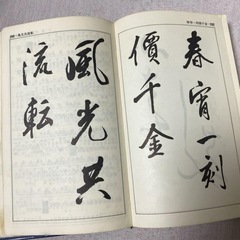 春宵一刻
價千金
風光共
流転